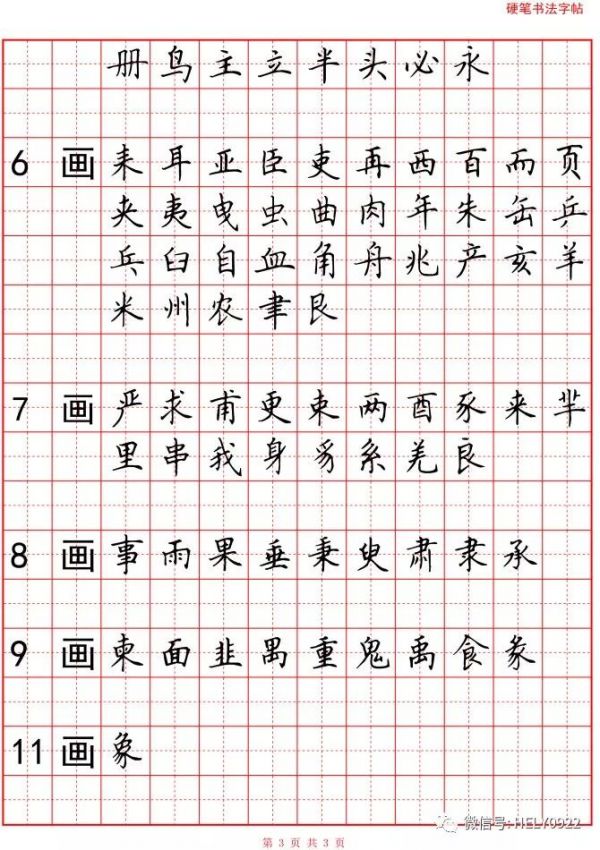 硬笔书法字帖
册鸟主立半头必永
6画 耒耳亚臣吏再西百而页
夹夷曳虫曲肉年朱缶乒
乓臼自血角舟兆产亥羊
米州农聿艮
7画 严求甫更束两酉豕来芈
里串我身豸系羌良
8画 事雨果垂秉臾肃隶承
9画 柬面韭禺重鬼禹食彖
11画 象
微信号: HELY0922
第 3 页 共 3 页